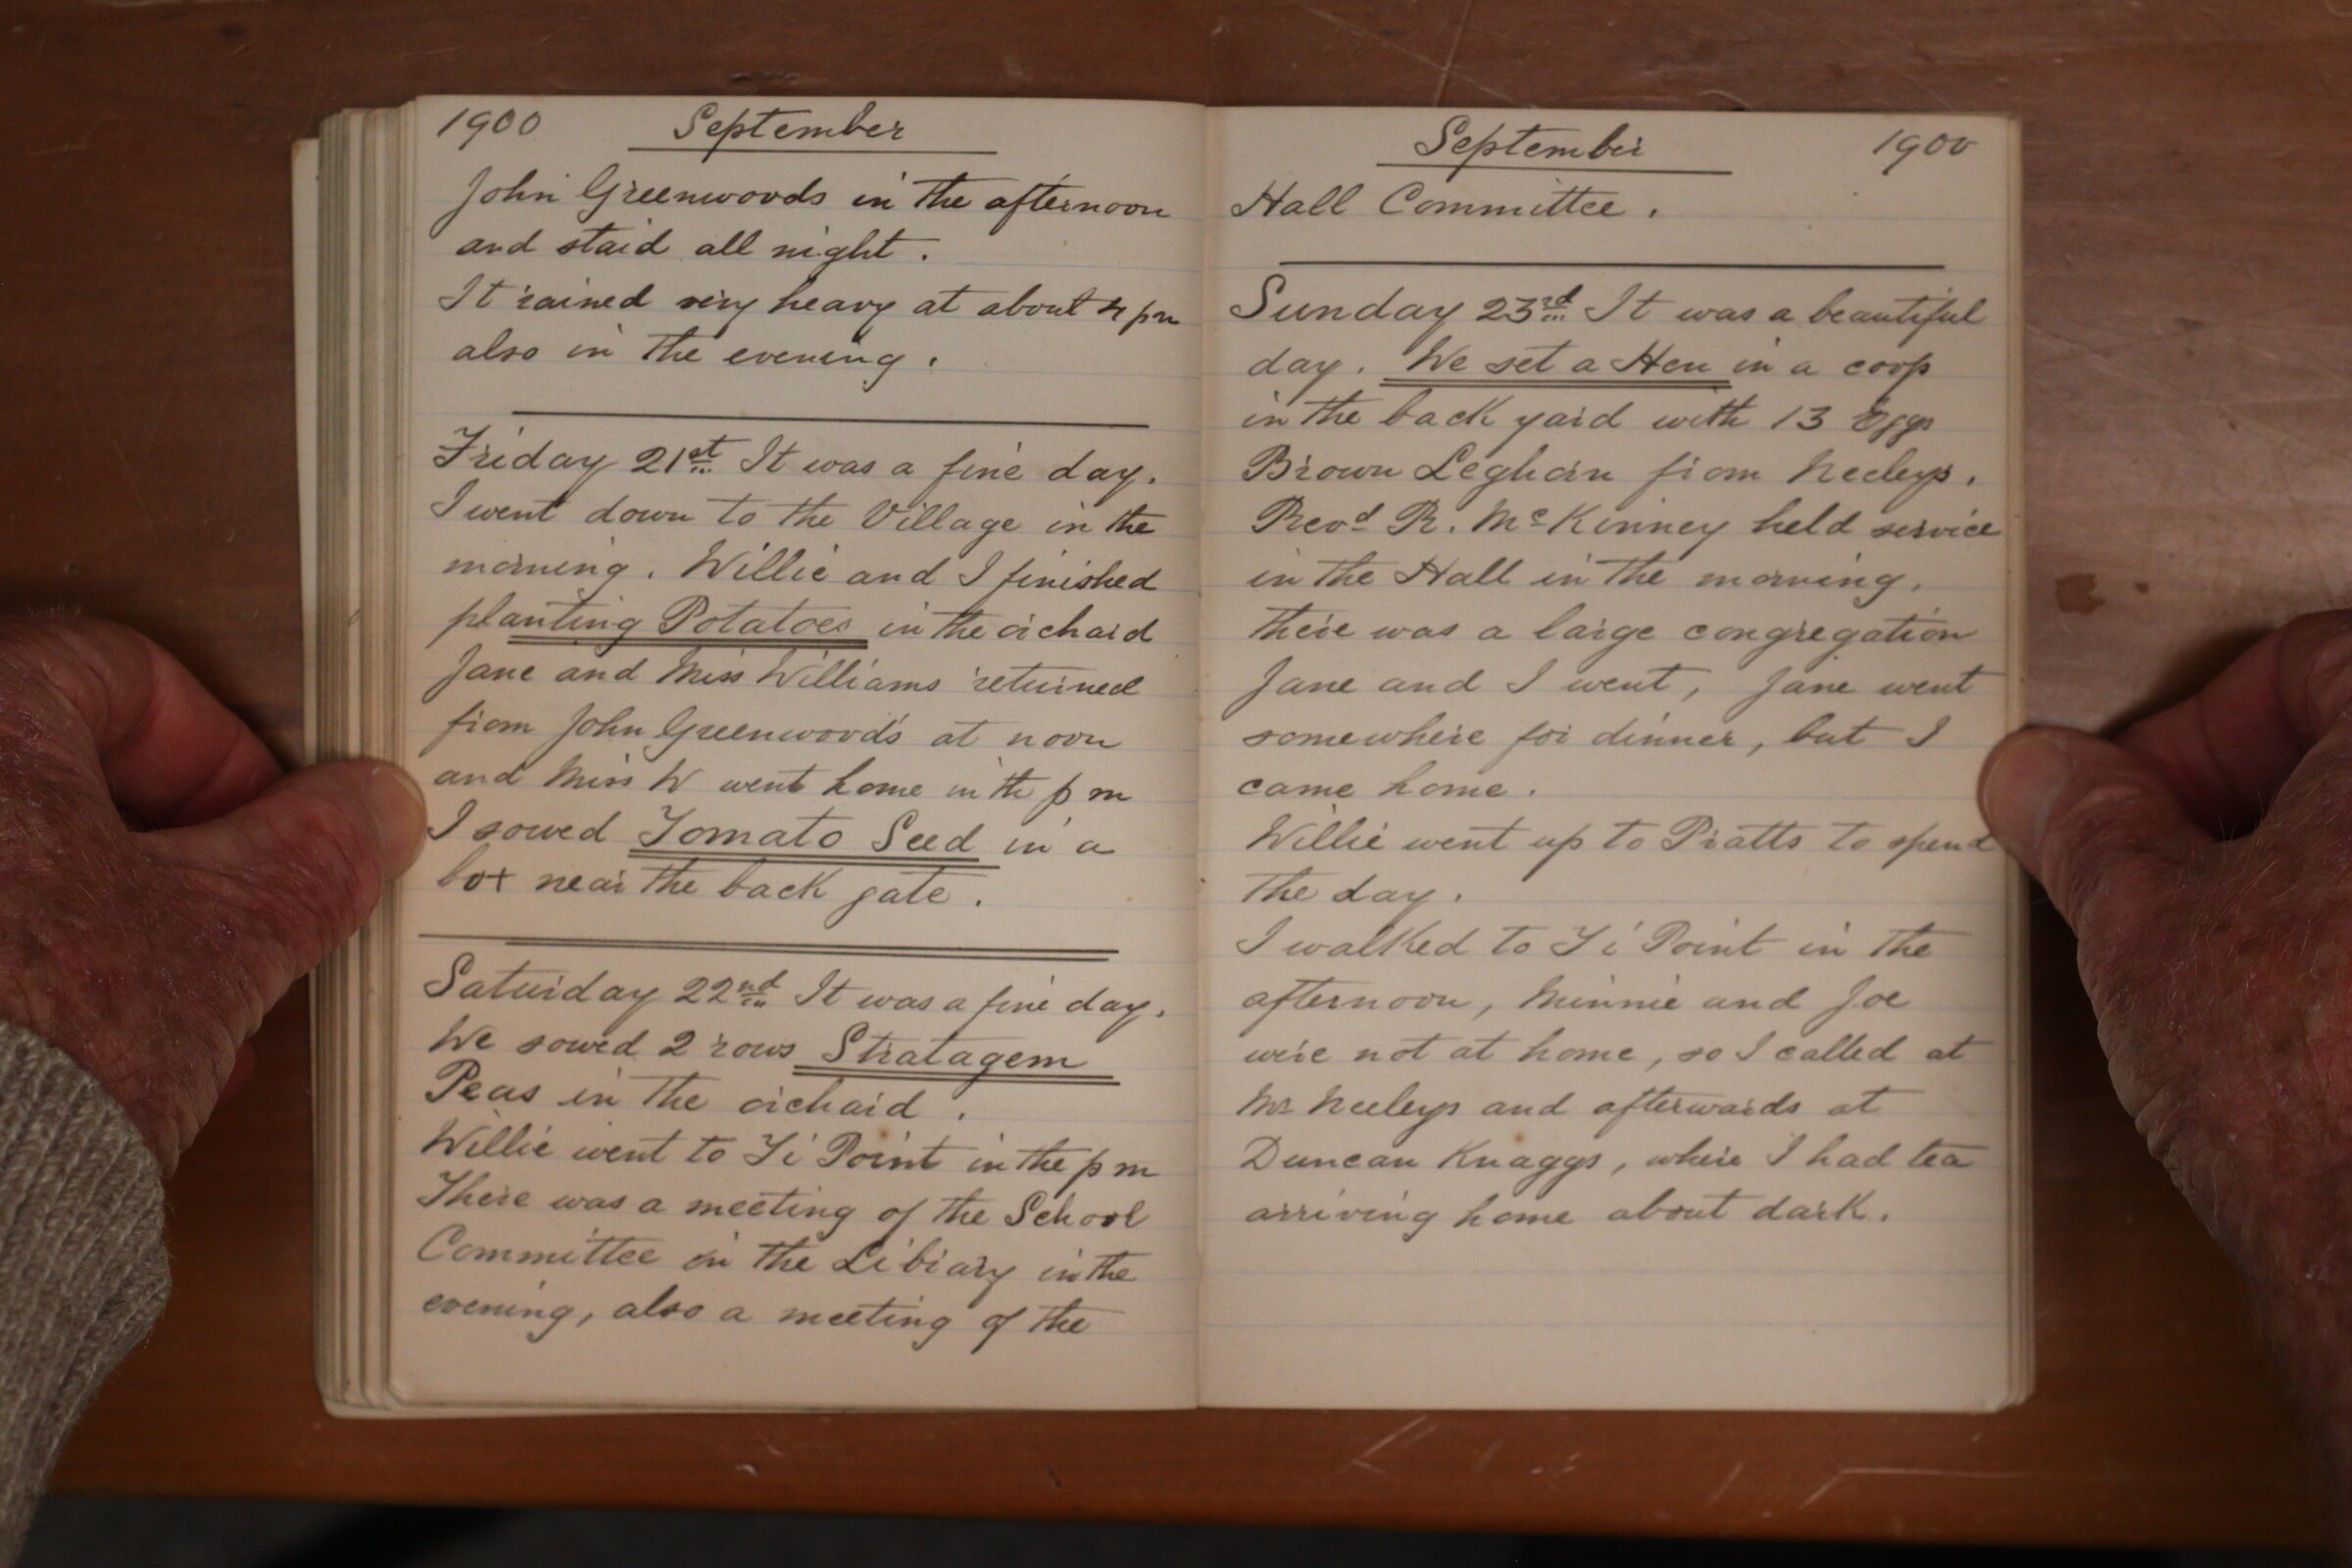 1900 September
John Greenwoods in the afternoon
and staid all night.
It rained very heavy at about 4 pm
also in the evening.
Friday 21st It was a fine day.
I went down to the Village in the
morning. Willie and I finished
planting Potatoes in the orchard
Jane and Miss Williams returned
from John Greenwood's at noon
and Miss W went home in th p m
I sowed Tomato Seed in a
box near the back gate.
Saturday 22nd It was a fine day.
We sowed 2 rows Stratagem
Peas in the orchard.
Willie went to Ti Point in the p m
There was a meeting of the School
Committee in the Library in the
evening, also a meeting of the
September 1900
Hall Committee.
Sunday 23rd It was a beautiful
day. We set a Hen in a coop
in the back yard with 13 Eggs
Brown Leghorn from Neeleys.
Revd R. McKinney held service
in the Hall in the morning.
there was a large congregation
Jane and I went, Jane went
somewhere for dinner, but I
came home.
Willie went up to Pratts to spend
the day.
I walked to Ti Point in the
afternoon, Minnie and Joe
were not at home, so I called at
Mr Neeleys and afterwards at
Duncan Knaggs, where I had tea
arriving home about dark.